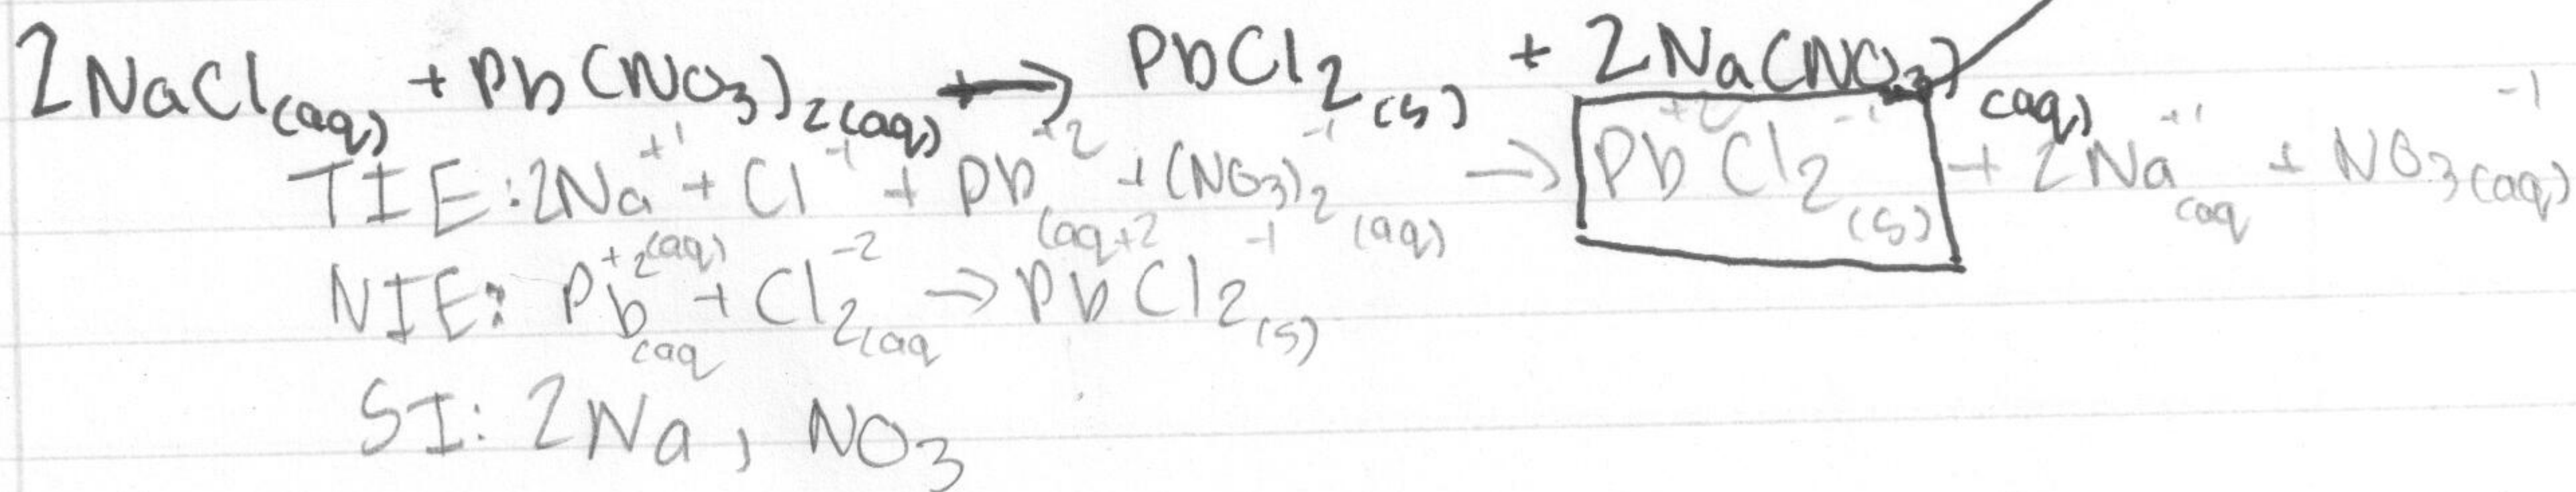 2NaCl(aq) + Pb(NO3)2(aq) → PbCl2(s) + 2Na(NO3)(aq)
TIE: 2Na+1(aq) + Cl-1 + Pb+2(aq + (NO3)2-1(aq) → Pb+2Cl2-1(s) + 2Na+1(aq + NO3-1(aq)
NIE: Pb+2(aq + Cl2-2(aq → Pb+2Cl2-1(s)
SI: 2Na, NO3